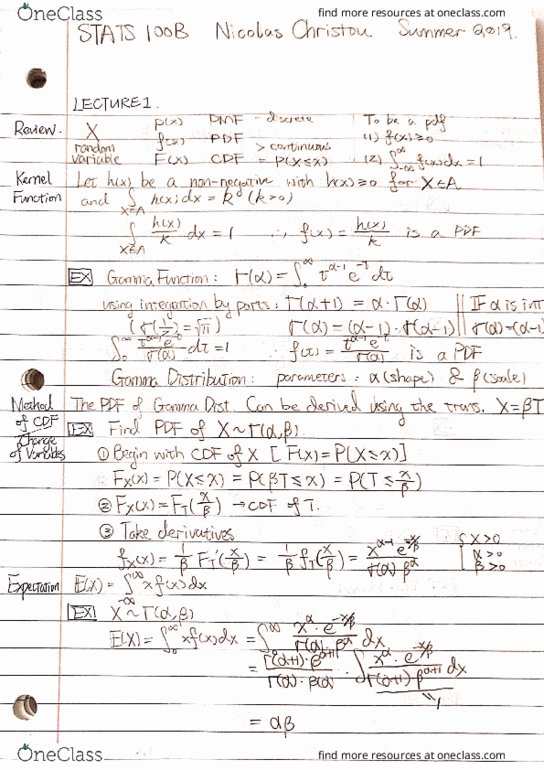 OneClass find more resources at oneclass.com
STATS 100B Nicolas Christou Summer 2019.
LECTURE 1.
Review. X random variable
p(x) PMF - discrete
f(x) PDF
> continuous
F(x) CDF = P(X≤x)
To be a pdf
(1) f(x)≥0
(2) ∫_{-∞}^{∞} f(x)dx = 1
Kernel Function
Let h(x) be a non-negative with h(x)≥0 for X∈A
and ∫_{X∈A} h(x)dx = k (k>0)
∫_{X∈A} h(x)/k dx = 1 ∴ f(x) = h(x)/k is a PDF
EX Gamma Function: Γ(α) = ∫_0^∞ t^{α-1} e^{-t} dt
using integration by parts: Γ(α+1) = α·Γ(α) || If α is int
(Γ(1/2) = √π) Γ(α) = (α-1)·Γ(α-1) || Γ(α) = (α-1)
∫_0^∞ t^{α-1}e^{-t}/Γ(α) dt = 1 ∴ f(t) = t^{α-1}e^{-t}/Γ(α) is a PDF
Gamma Distribution: parameters: α(shape) & β(scale)
Method of CDF / Change of Variables
The PDF of Gamma Dist. Can be derived using the trans. X=βT
EX Find PDF of X~Γ(α,β)
① Begin with CDF of X [F(x) = P(X≤x)]
F_X(x) = P(X≤x) = P(βT≤x) = P(T≤x/β)
② F_X(x) = F_T(x/β) → CDF of T.
③ Take derivatives
f_X(x) = 1/β F_T'(x/β) = 1/β f_T(x/β) = x^{α-1}e^{-x/β}/Γ(α)β^α { x>0 α>0 β>0
Expectation E(X) = ∫_{-∞}^{∞} xf(x)dx
EX X~Γ(α,β)
E(X) = ∫_0^∞ xf(x)dx = ∫_0^∞ x^α·e^{-x/β}/Γ(α)·β^α dx
= Γ(α+1)·β^{α+1}/Γ(α)·β(α) · ∫ x^α·e^{-x/β}/Γ(α+1)β^{α+1} dx
"1
= αβ
OneClass find more resources at oneclass.com